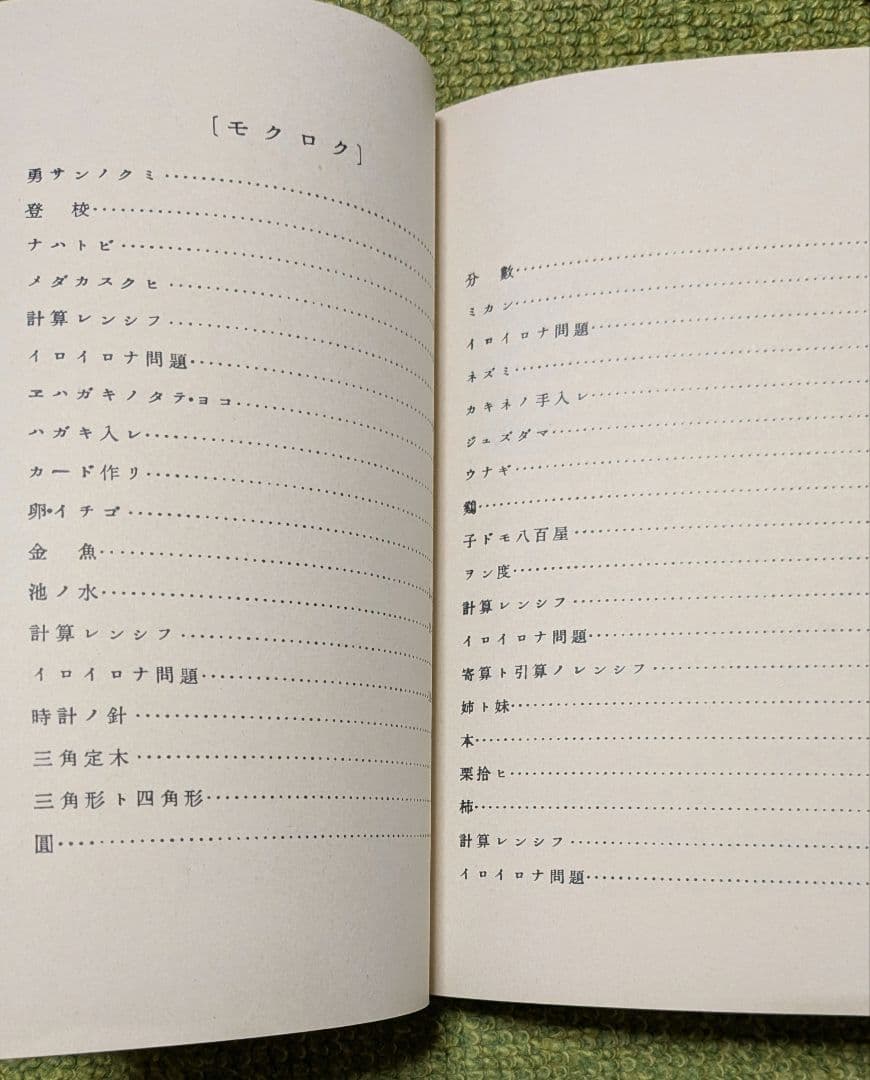 [モクロク]
勇サンノクミ
登 校
ナハトビ
メダカスクヒ
計算レンシフ
イロイロナ問題
ヱハガキノタテ・ヨコ
ハガキ入レ
カード作リ
卵・イチゴ
金 魚
池ノ水
計算レンシフ
イロイロナ問題
時計ノ針
三角定木
三角形ト四角形
圓
分 數
ミカン
イロイロナ問題
ネズミ
カキネノ手入レ
ジュズダマ
ウナギ
鷄
子ドモ八百屋
ヲン度
計算レンシフ
イロイロナ問題
寄算ト引算ノレンシフ
姉ト妹
本
栗拾ヒ
柿
計算レンシフ
イロイロナ問題